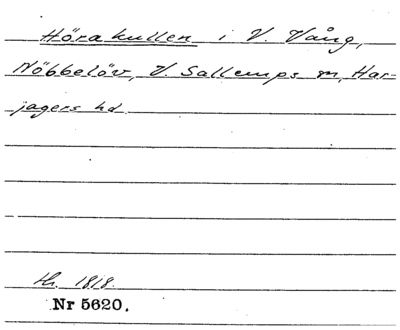 Hörakullen i V. Vång,
Nöbbelöv, V. Sallerups m, Har-
jagers hd.
Hr. 1818.
Nr 5620.